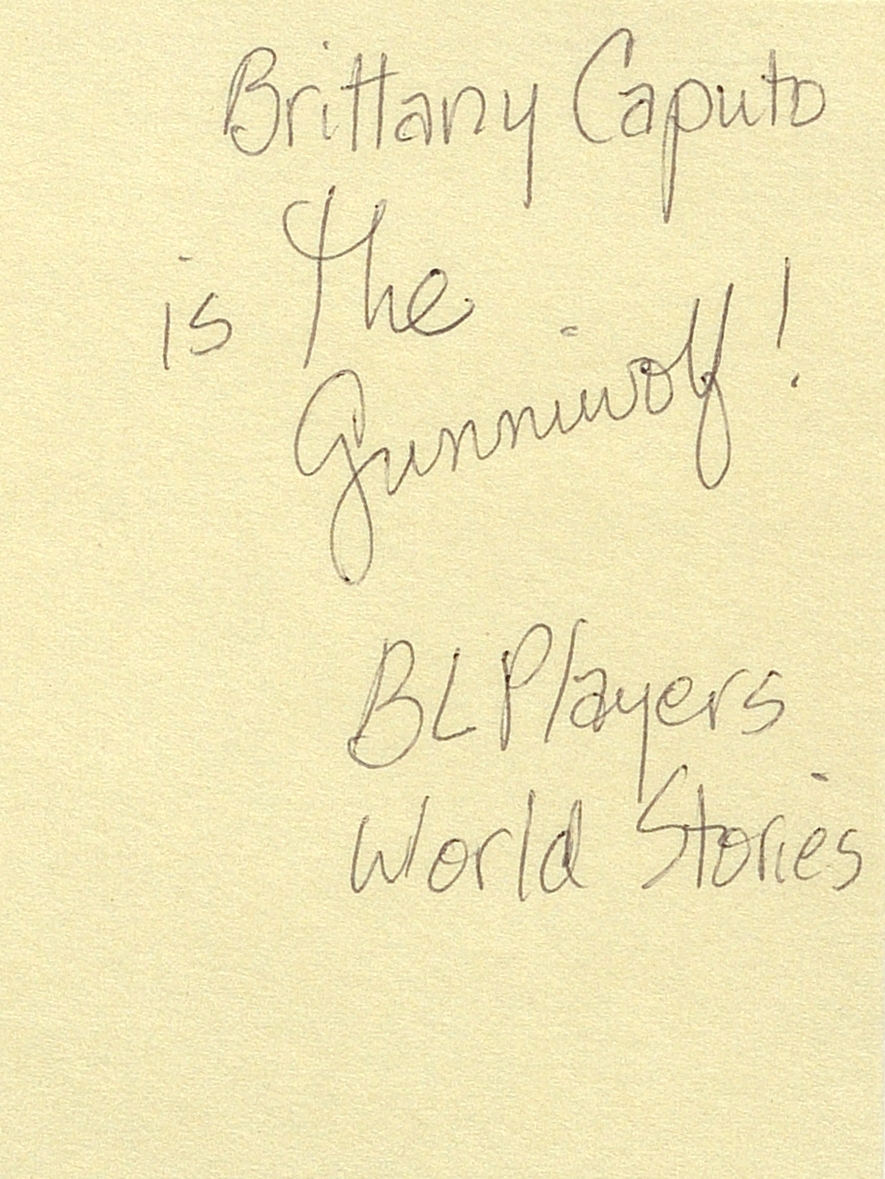 Brittany Caputo
is The
Gunniwolf!
BLPlayers
World Stories